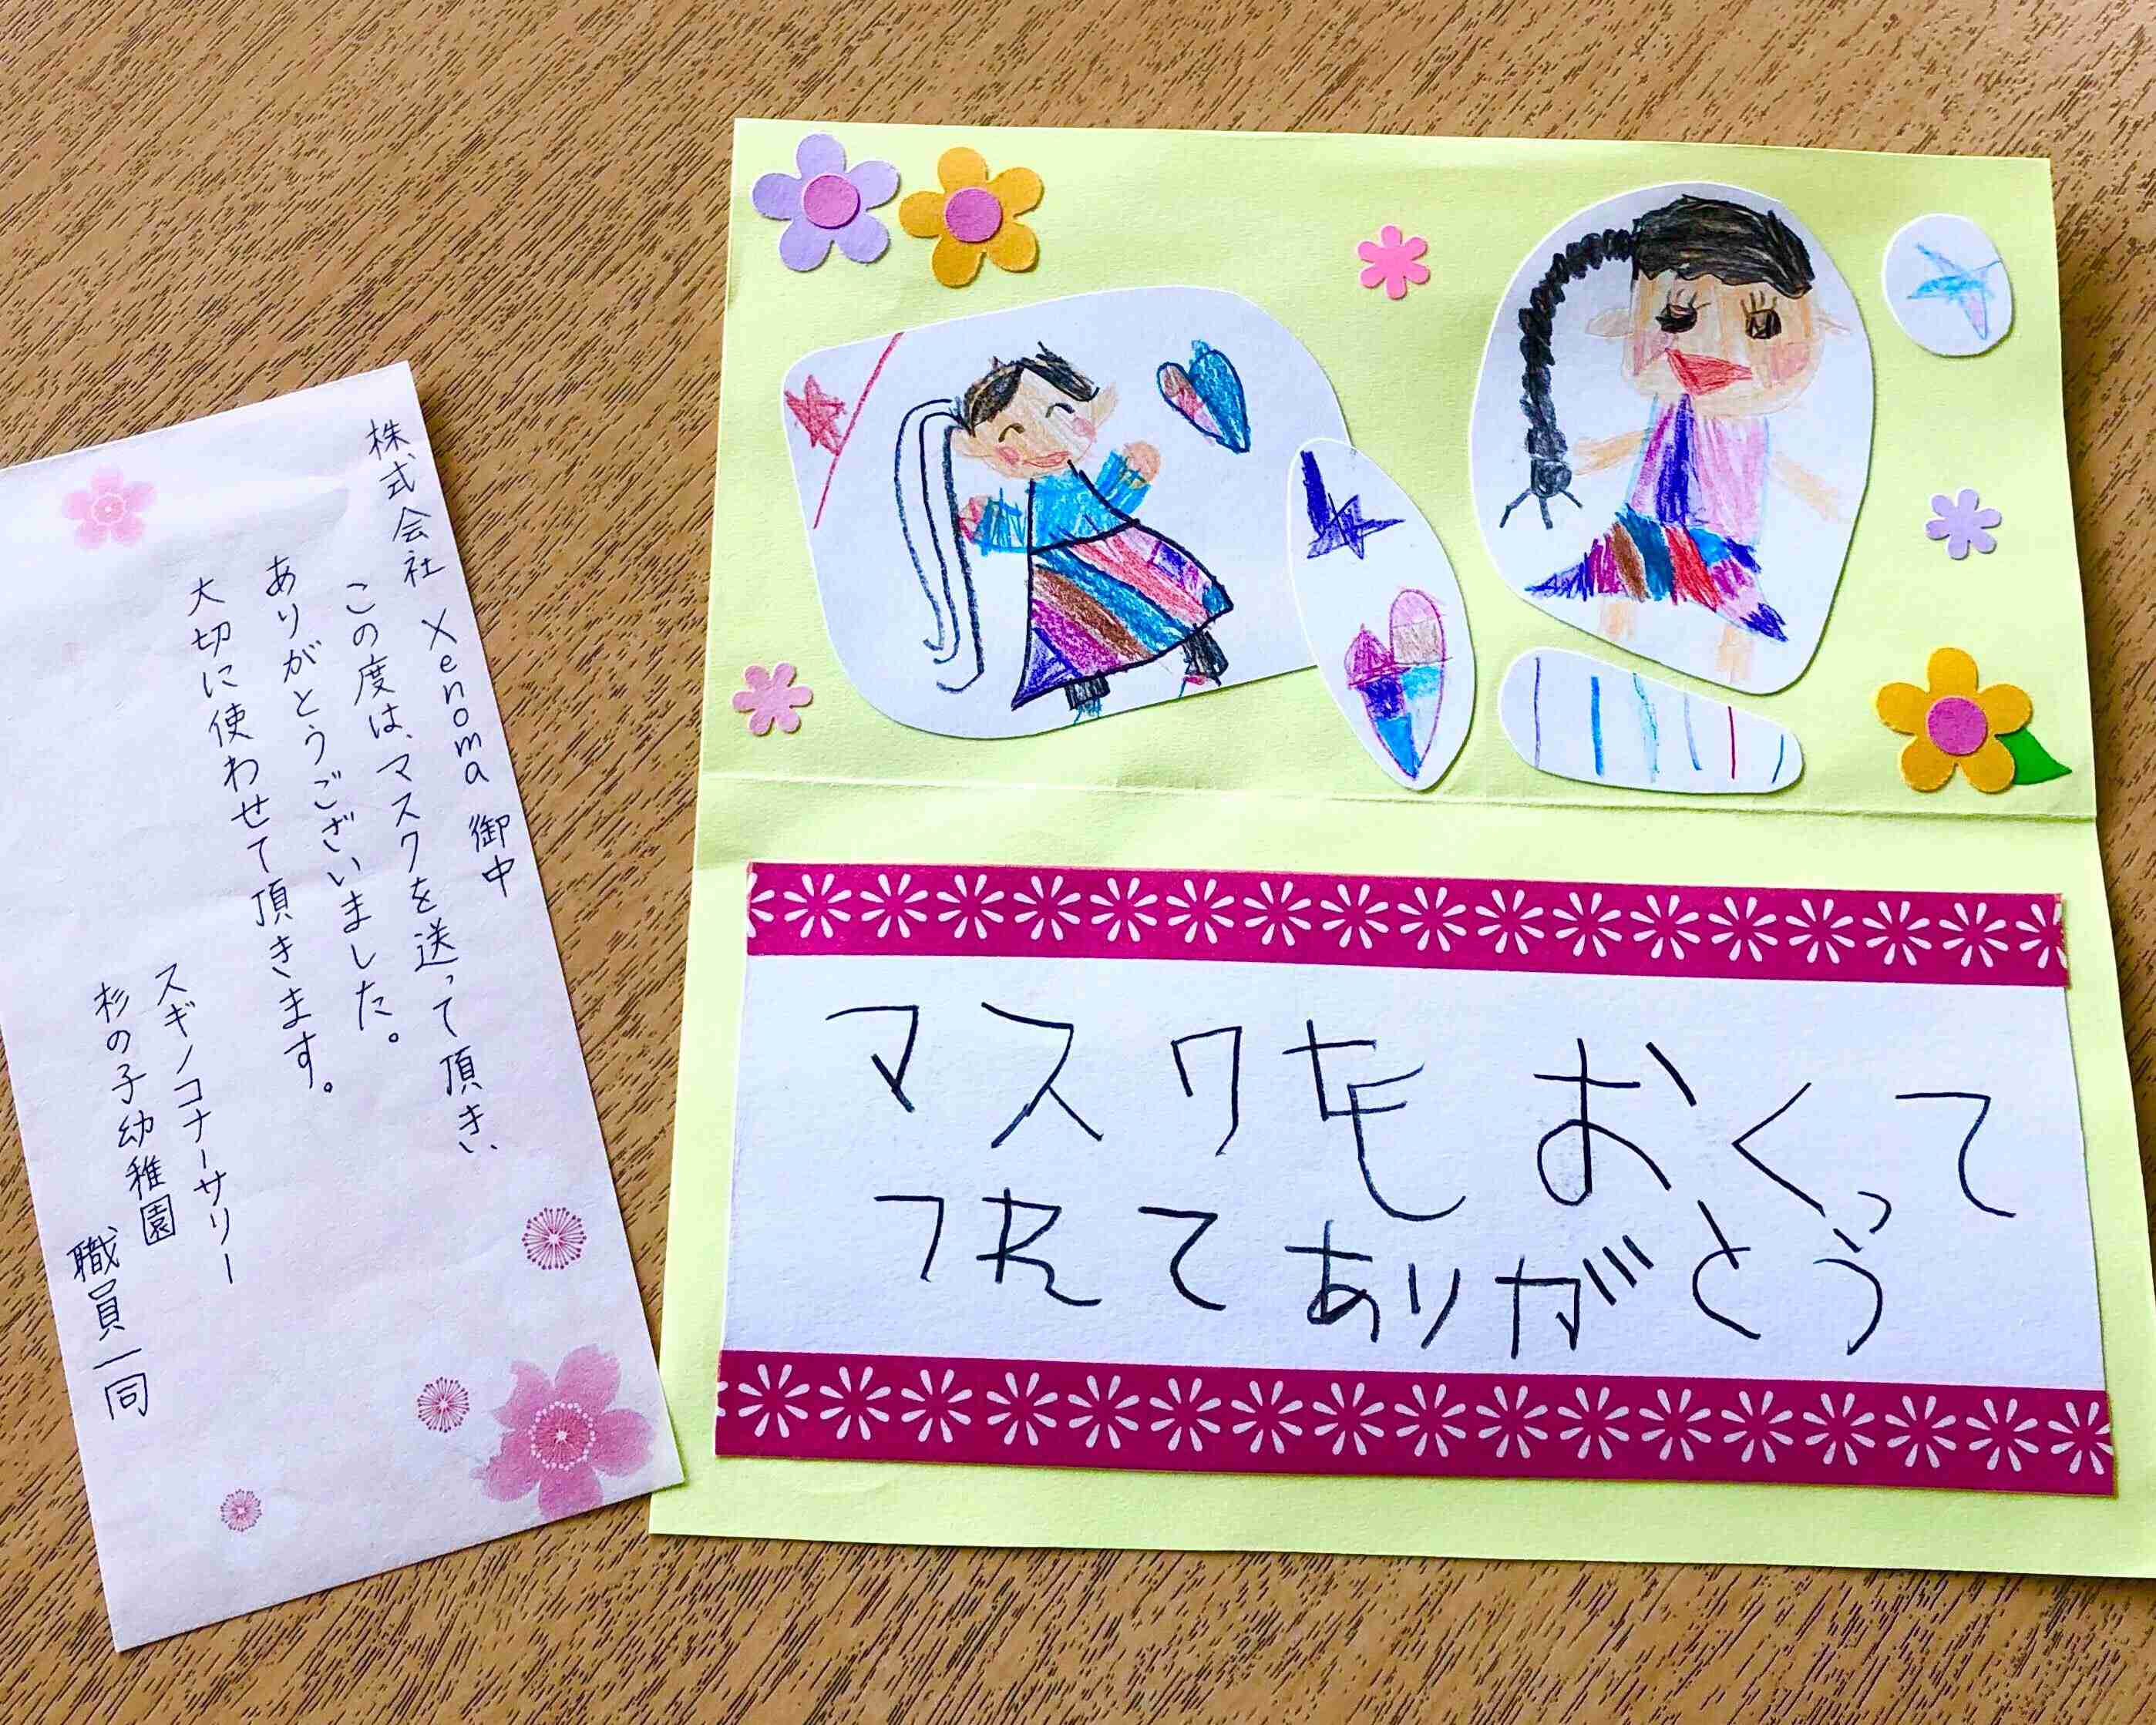 株式会社 Xenoma 御中
この度は、マスクを送って頂き、
ありがとうございました。
大切に使わせて頂きます。
スギノコナーサリー
杉の子幼稚園
職員一同
マスクをおくって
くれてありがとう